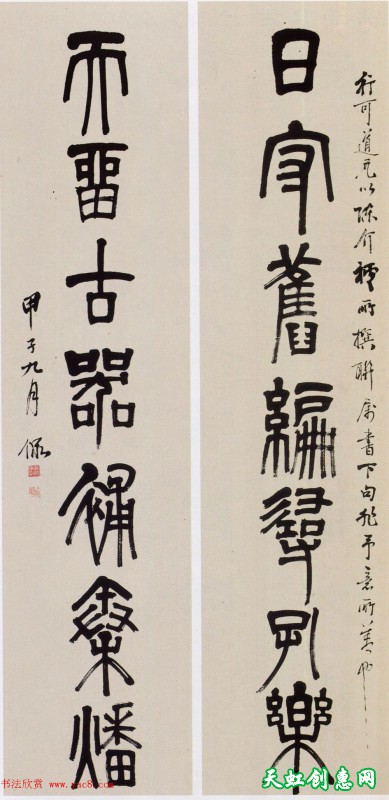 行可道兄以陳介祺所撰聯屬書下句非予意所美也
日守舊編尋孔樂
天留古器補秦燔
甲子九月 侃
书法欣赏 www.yac8.com
天虹创惠网